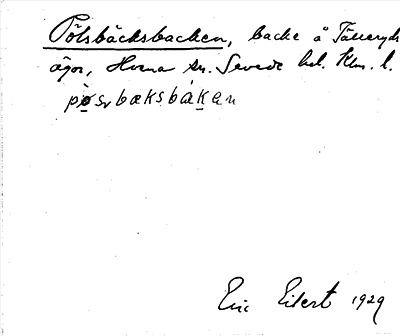 Pölsbäcksbacken, backe å Fälleryds
ägor, Horna sn. Sevede hd. Klm. l.
pøsvbæksbakan
Eric Eilert 1929